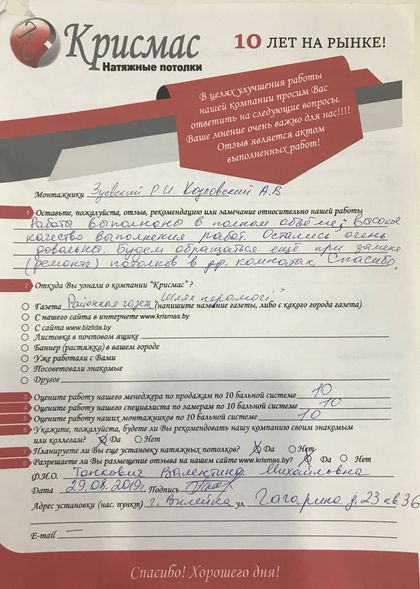 Крисмас
Натяжные потолки
10 ЛЕТ НА РЫНКЕ!
В целях улучшения работы
нашей компании просим Вас
ответить на следующие вопросы.
Ваше мнение очень важно для нас!!!!
Отзыв является актом
выполненных работ!
Монтажники Зуевский Р.И. Козловский А.В
1 Оставьте, пожалуйста, отзыв, рекомендацию или замечание относительно нашей работы
Работы выполнены в полном объёме, высокое
качество выполнения работ. Остались очень
довольны. Будем обращаться ещё при замене
(ремонте) потолков в др. комнатах. Спасибо.
2 Откуда Вы узнали о компании "Крисмас" ?
Газета Районная газета "Шлях перамогі" (напишите название газеты, либо с какого города газета)
С нашего сайта в интернете www.krismas.by
С сайта www.bizlida.by
Листовка в почтовом ящике
Баннер (растяжка) в вашем городе
Уже работали с Вами
Посоветовали знакомые
Другое
3 Оцените работу нашего менеджера по продажам по 10 бальной системе 10
4 Оцените работу нашего специалиста по замерам по 10 бальной системе 10
5 Оцените работу наших монтажников по 10 бальной системе 10
6 Укажите, пожалуйста, будете ли Вы рекомендовать нашу компанию своим знакомым
или коллегам? Да Нет
7 Планируете ли Вы еще установку натяжных потолков? Да Нет
8 Разрешаете ли Вы размещение отзыва на нашем сайте www.krismas.by? Да Нет
Ф.И.О. Танкович Валентина Михайловна
Дата 29.08.2019г. Подпись
Адрес установки (нас. пункт) г. Вилейка ул. Гагарина д.23 кв 36
E-mail —
Спасибо! Хорошего дня!